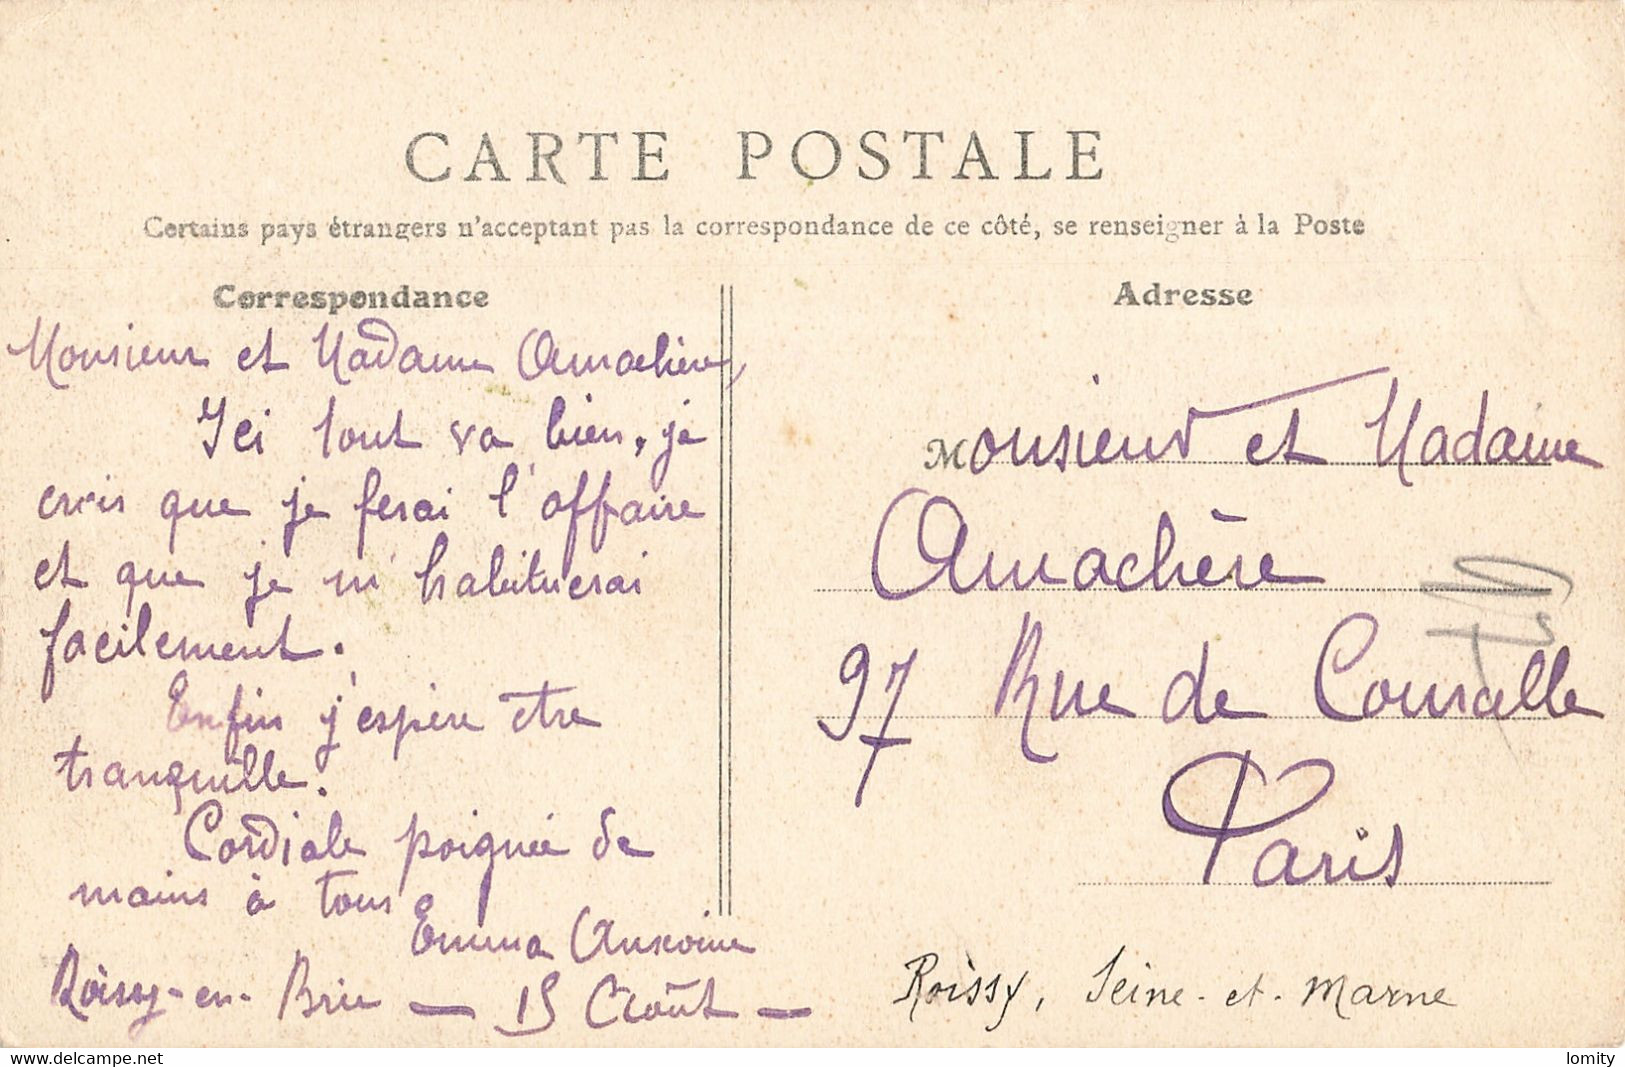 CARTE POSTALE
Certains pays étrangers n'acceptant pas la correspondance de ce côté, se renseigner à la Poste
Correspondance
Monsieur et Madame Amachère,
Ici tout va bien, je
crois que je ferai l'affaire
et que je m'habituerai
facilement.
Enfin j'espère être
tranquille.
Cordiale poignée de
mains à tous
Emma
Roissy-en-Brie — 15 Août —
Adresse
Monsieur et Madame
Amachère
97 Rue de Courcelle
Paris
Roissy, Seine-et-Marne
delcampe.net
lomity